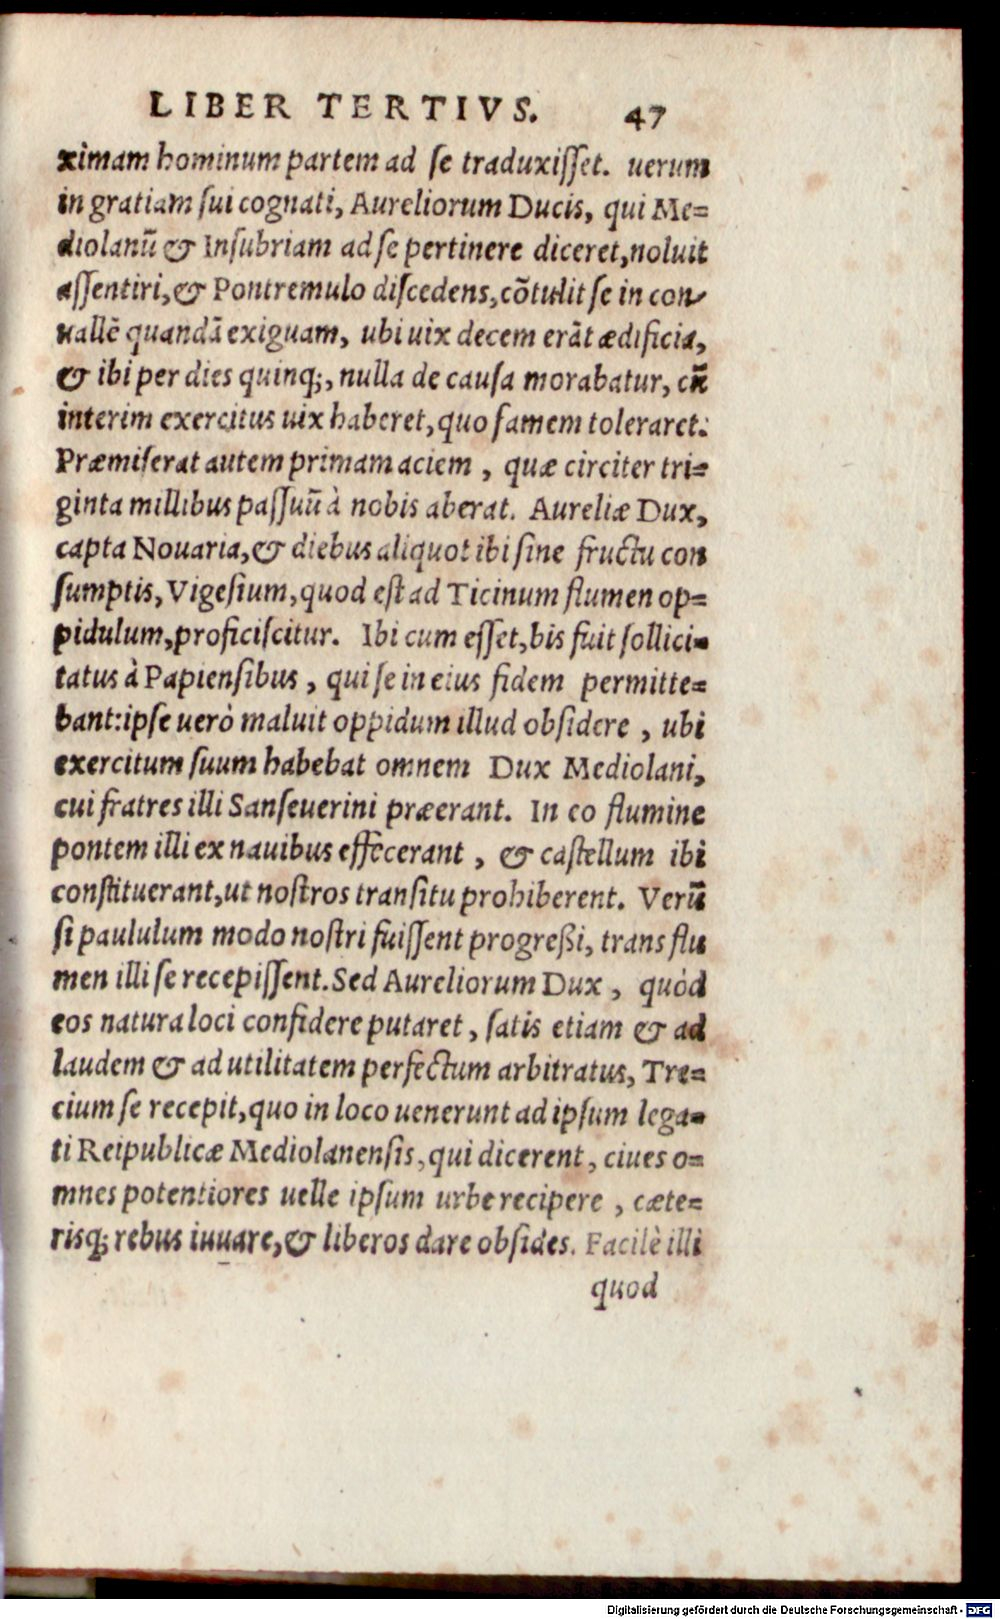 LIBER TERTIVS. 47
ximam hominum partem ad se traduxisset. uerum
in gratiam sui cognati, Aureliorum Ducis, qui Me=
diolanū & Insubriam ad se pertinere diceret, noluit
assentiri, & Pontremulo discedens, cōtulit se in con
uallē quandā exiguam, ubi uix decem erāt ædificia,
& ibi per dies quinq;, nulla de causa morabatur, cū
interim exercitus uix haberet, quo famem toleraret.
Præmiserat autem primam aciem, quæ circiter tri=
ginta millibus passuū à nobis aberat. Aureliæ Dux,
capta Nouaria, & diebus aliquot ibi sine fructu con
sumptis, Vigesium, quod est ad Ticinum flumen op=
pidulum, proficiscitur. Ibi cum esset, bis fuit sollici=
tatus à Papiensibus, qui se in eius fidem permitte=
bant: ipse uerò maluit oppidum illud obsidere, ubi
exercitum suum habebat omnem Dux Mediolani,
cui fratres illi Sanseuerini præerant. In eo flumine
pontem illi ex nauibus effecerant, & castellum ibi
constituerant, ut nostros transitu prohiberent. Verū
si paululum modo nostri fuissent progreßi, trans flu
men illi se recepissent. Sed Aureliorum Dux, quòd
eos natura loci confidere putaret, satis etiam & ad
laudem & ad utilitatem perfectum arbitratus, Tre=
cium se recepit, quo in loco uenerunt ad ipsum lega=
ti Reipublicæ Mediolanensis, qui dicerent, ciues o=
mnes potentiores uelle ipsum urbe recipere, cæte=
risq; rebus iuuare, & liberos dare obsides. Facilè illi
quod
Digitalisierung gefördert durch die Deutsche Forschungsgemeinschaft - DFG